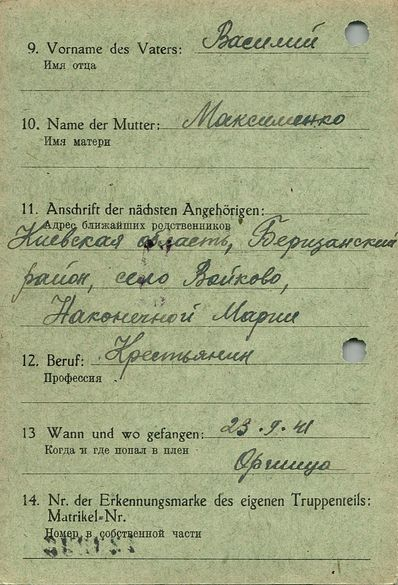 9. Vorname des Vaters: Василий
Имя отца
10. Name der Mutter: Максименко
Имя матери
11. Anschrift der nächsten Angehörigen:
Адрес ближайших родственников
Киевская область, Беризанский
район, село Войково,
Наконечной Марии
12. Beruf: Крестьянин
Профессия
13 Wann und wo gefangen: 23.9.41
Когда и где попал в плен
Оржица
14. Nr. der Erkennungsmarke des eigenen Truppenteils:
Matrikel-Nr.
Номер в собственной части